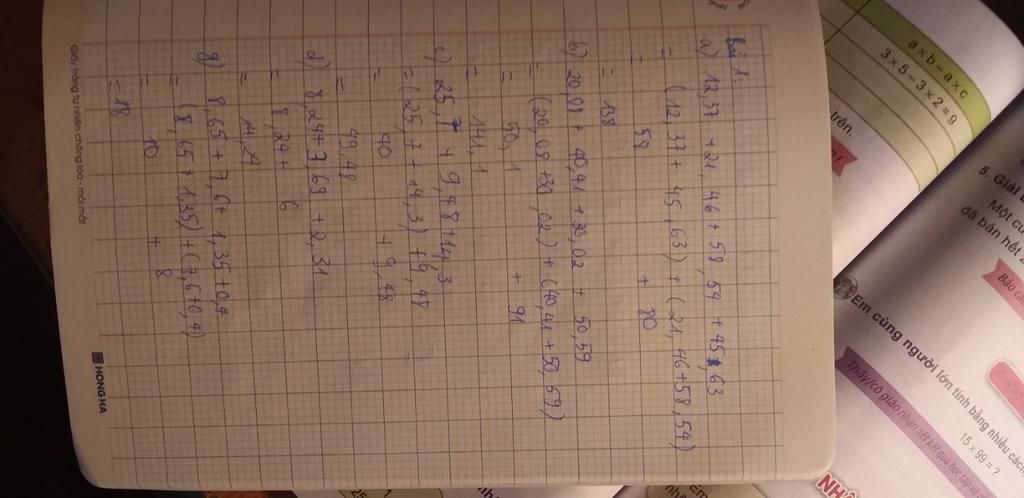 Bài 1:
a) 12,37 + 21,46 + 58,54 + 45,63
= (12,37 + 45,63) + (21,46 + 58,54)
= 58 + 80
= 138
b) 20,08 + 40,41 + 30,02 + 50,59
= (20,08 + 30,02) + (40,41 + 50,59)
= 50,1 + 91
= 141,1
c) 25,7 + 9,48 + 14,3
= (25,7 + 14,3) + 9,48
= 40 + 9,48
= 49,48
d) 8,24 + 3,69 + 2,31
= 8,24 + 6
= 14,24
g) 8,65 + 7,6 + 1,35 + 0,4
= (8,65 + 1,35) + (7,6 + 0,4)
= 10 + 8
= 18
Giấy trắng tự nhiên chống loá - mỏi mắt
HONG HA
a × b – a × c
3 × 5 – 3 × 2 = 9
trên.
5. Giải
Một cử
đã bán hết 2
Em cùng người lớn tính bằng nhiều các
15 × 99 = ?
Thầy/cô giáo nhận xét kết quả học tập